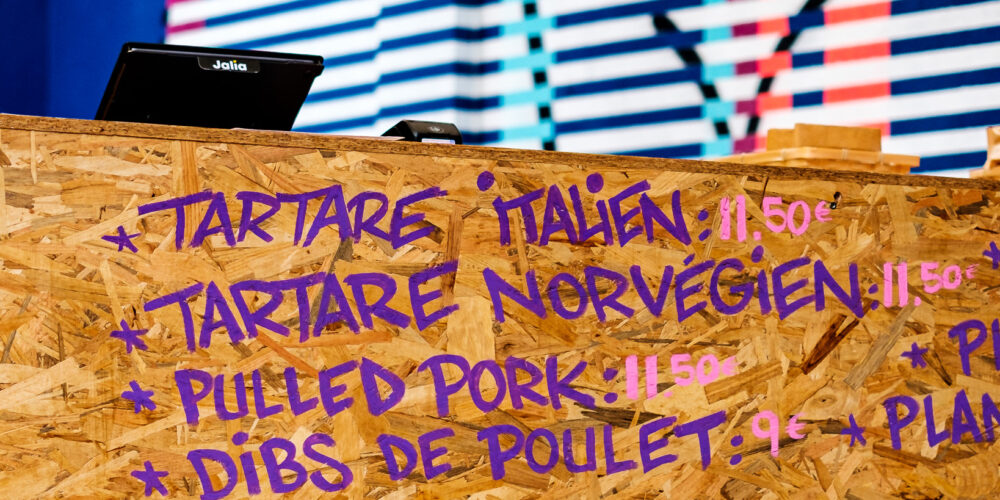 Jalia
* TARTARE iTALiEN: 11.50€
* TARTARE NORVÉGiEN: 11.50€
* PULLED PORK: 11.50€
* DiBS DE POULET: 9€
*
* P
* PLAN